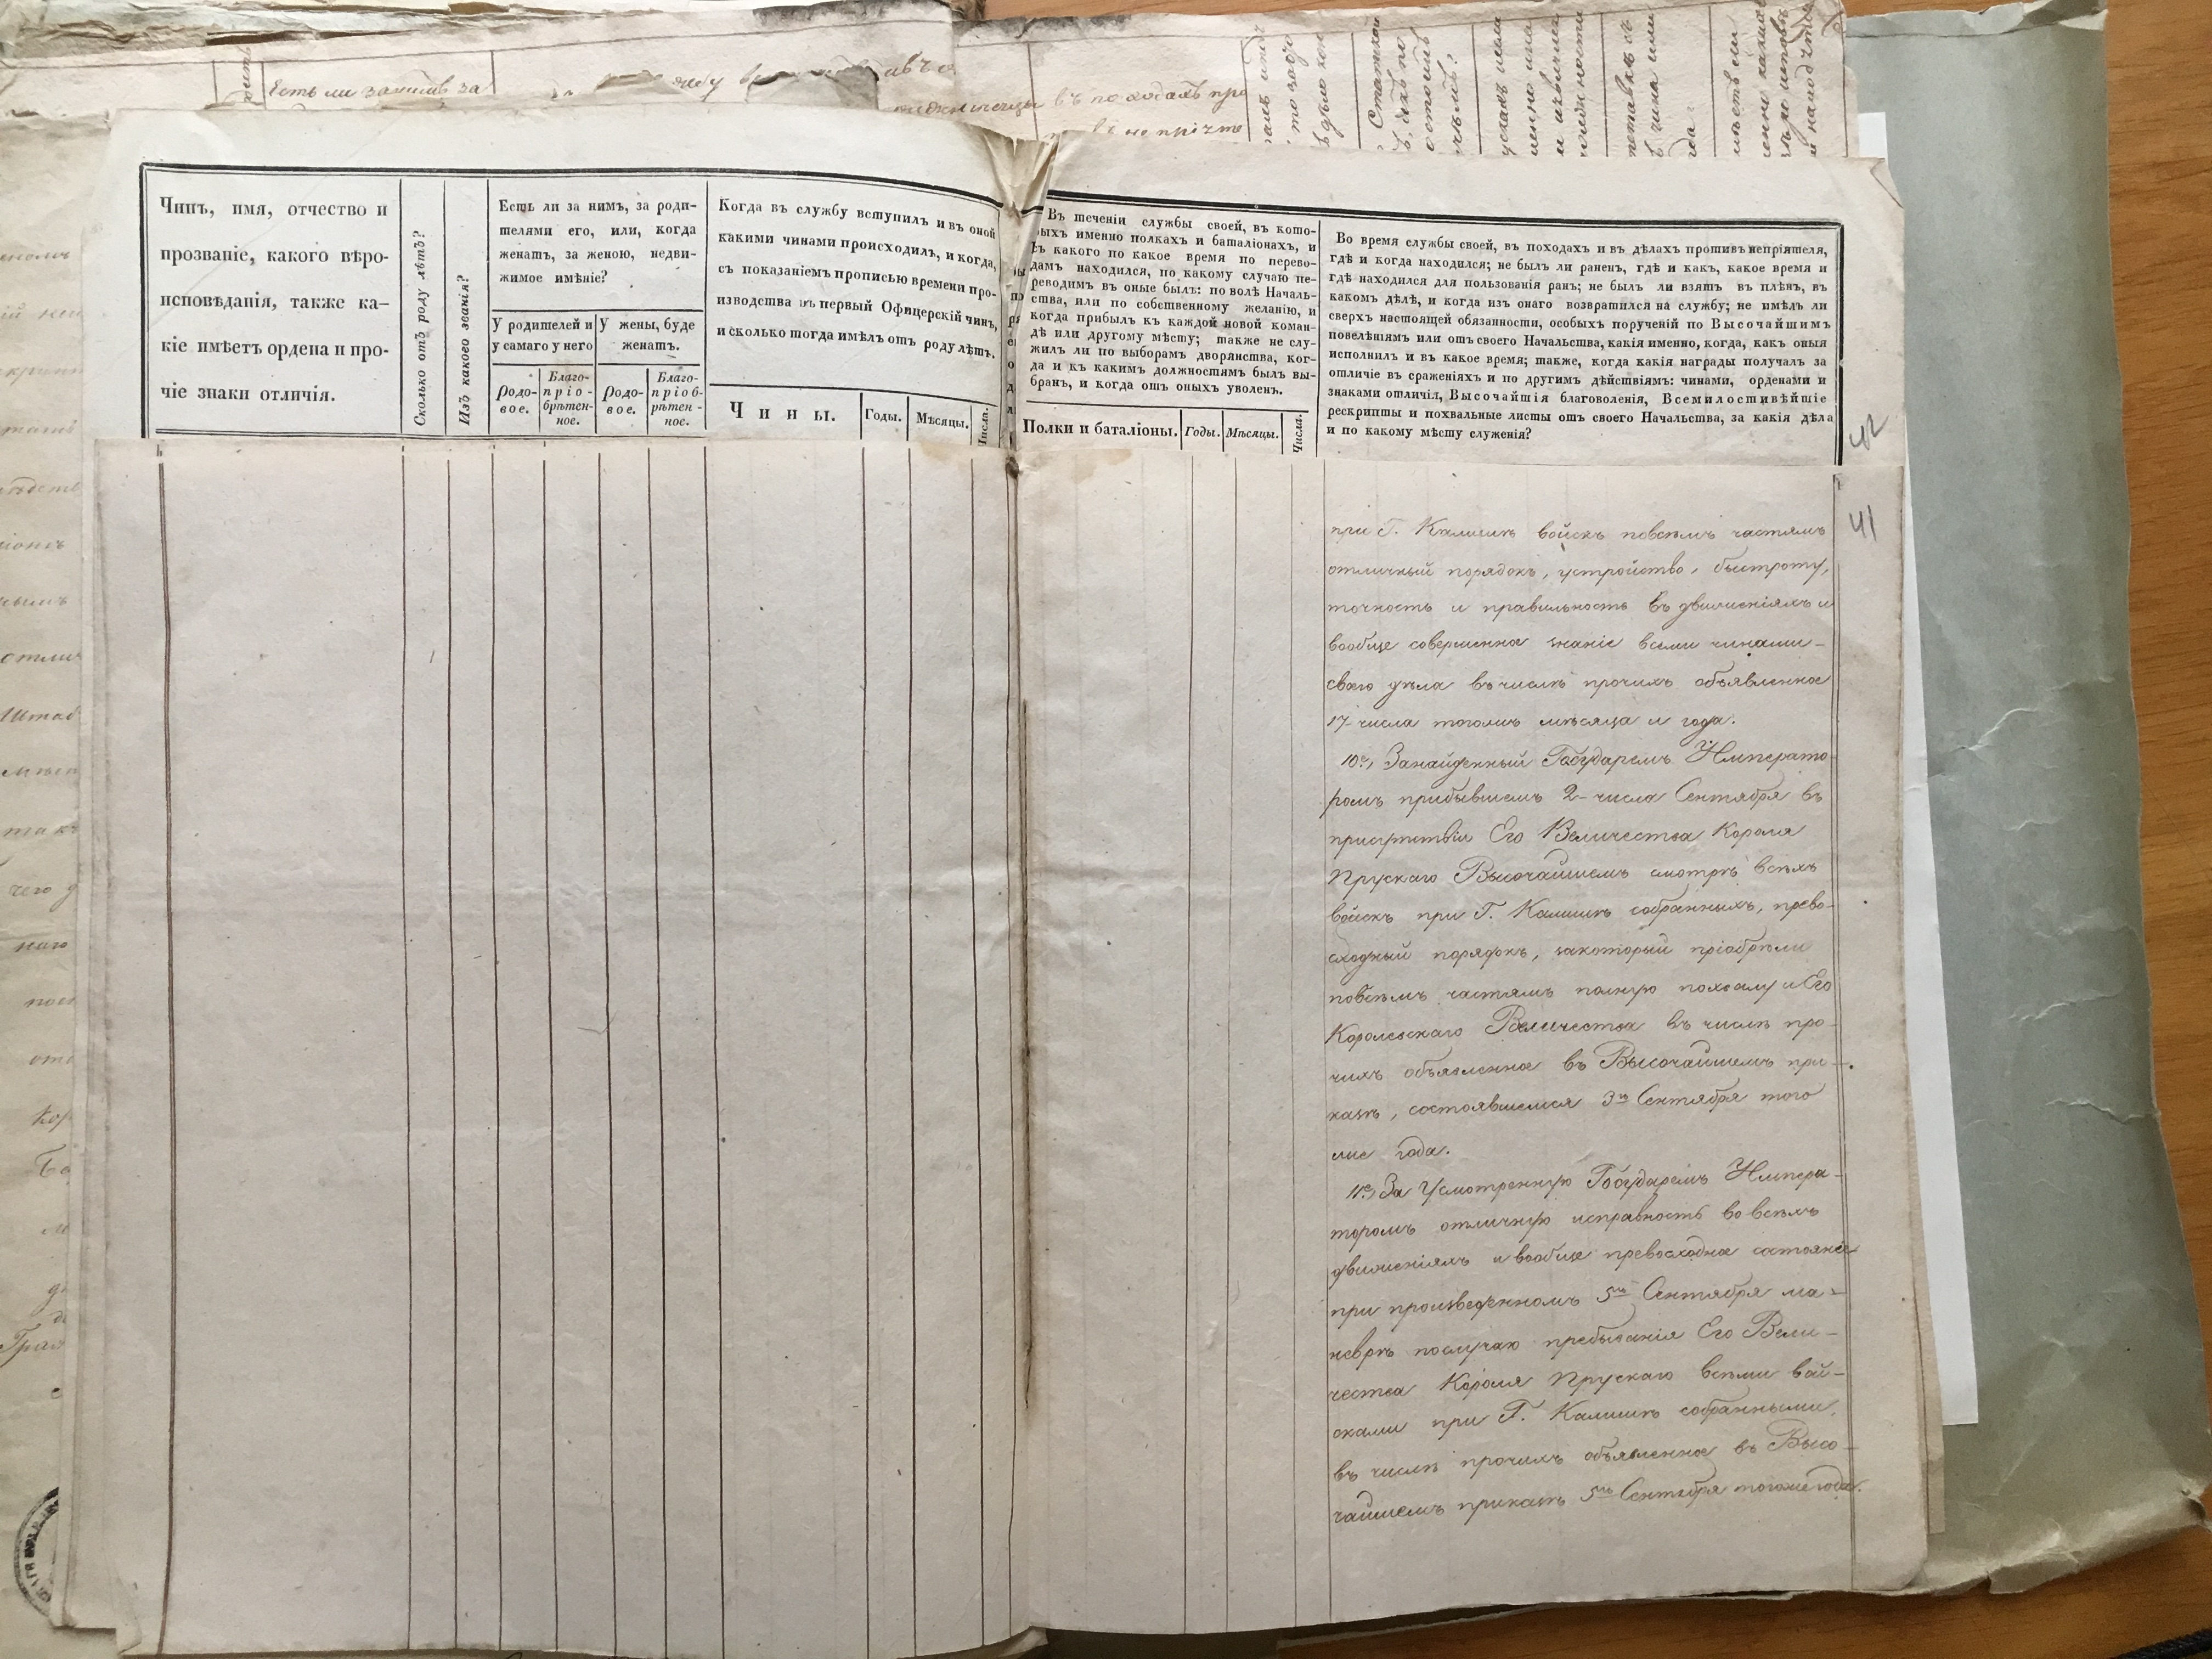 Есть ли за нимъ за
въ походахъ про
Чинъ, имя, отчество и
прозваніе, какого вѣро-
исповѣданія, также ка-
кіе имѣетъ ордена и про-
чіе знаки отличія.
Сколько отъ роду лѣтъ?
Изъ какого званія?
Есть ли за нимъ, за роди-
телями его, или, когда
женатъ, за женою, недви-
жимое имѣніе?
У родителей и
у самаго у него
У жены, буде
женатъ.
Родо-
вое.
Благо-
пріо-
брѣтен-
ное.
Родо-
вое.
Благо-
пріоб-
рѣтен-
ное.
Когда въ службу вступилъ и въ оной
какими чинами происходилъ, и когда,
съ показаніемъ прописью времени про-
изводства въ первый Офицерскій чинъ,
и сколько тогда имѣлъ отъ роду лѣтъ.
Чины.
Годы.
Мѣсяцы.
Числа.
Въ теченіи службы своей, въ кото-
рыхъ именно полкахъ и баталіонахъ, и
съ какого по какое время по перево-
дамъ находился, по какому случаю пе-
реводимъ въ оные былъ: по волѣ Началь-
ства, или по собственному желанію, и
когда прибылъ къ каждой новой коман-
дѣ или другому мѣсту; также не слу-
жилъ ли по выборамъ дворянства, ког-
да и къ какимъ должностямъ былъ вы-
бранъ, и когда отъ оныхъ уволенъ.
Полки и баталіоны.
Годы.
Мѣсяцы.
Числа.
Во время службы своей, въ походахъ и въ дѣлахъ противъ непріятеля,
гдѣ и когда находился; не былъ ли раненъ, гдѣ и какъ, какое время и
гдѣ находился для пользованія ранъ; не былъ ли взятъ въ плѣнъ, въ
какомъ дѣлѣ, и когда изъ онаго возвратился на службу; не имѣлъ ли
сверхъ настоящей обязанности, особыхъ порученій по Высочайшимъ
повелѣніямъ или отъ своего Начальства, какія именно, когда, какъ оныя
исполнилъ и въ какое время; также, когда какія награды получалъ за
отличіе въ сраженіяхъ и по другимъ дѣйствіямъ: чинами, орденами и
знаками отличія, Высочайшія благоволенія, Всемилостивѣйшіе
рескрипты и похвальные листы отъ своего Начальства, за какія дѣла
и по какому мѣсту служенія?
42
41
при Г. Калишѣ войскъ повсѣмъ частямъ
отличный порядокъ, устройство, быстроту,
точность и правильность въ движеніяхъ и
вообще совершенное знаніе всеми чинами
своего дѣла въ числѣ прочихъ объявленное
17 числа тогожъ мѣсяца и года.
10е, Занайденный Государемъ Императо-
ромъ прибывшемъ 2 числа Сентября въ
присутствіи Его Величества Короля
Прускаго Высочайшемъ смотрѣ всѣхъ
войскъ при Г. Калишѣ собранныхъ, прево-
сходный порядокъ, закоторый пріобрѣли
повсѣмъ частямъ полную похвалу и Его
Королевскаго Величества въ числѣ про-
чихъ объявленное въ Высочайшемъ при-
казѣ, состоявшемся 3го Сентября того
же года.
11е, За Усмотренную Государемъ Импера-
торомъ отличную исправность во всѣхъ
движеніяхъ и вообще превосходное состояніе
при произведенномъ 5го Сентября ма-
неврѣ послучаю пребыванія Его Вели-
чества Короля Прускаго всѣми вой-
сками при Г. Калишѣ собранными,
въ числѣ прочихъ объявленное въ Высо-
чайшемъ приказѣ 5го Сентября тогоже года.